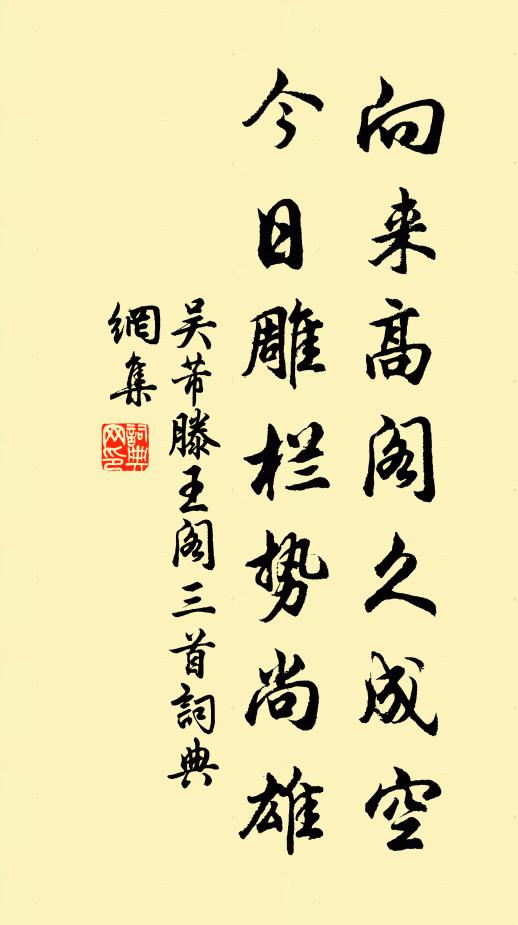 向来高阁久成空
今日雕栏势尚雄
吴芾滕王阁三首詞典
網集
詞典
网印